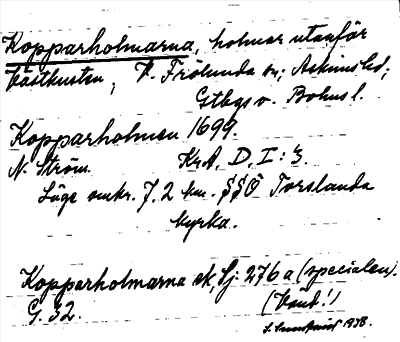 Kopparholmarna, holmar utanför
Västkusten, V. Frölunda sn; Askims hd;
Gtbgs o. Bohus l.
Kopparholmen 1699.
N. Ström. KrA, D. I: 3.
Läge omkr. 7,2 km. SSÖ Torslanda
kyrka.
Kopparholmarna ek, Sj. 276a (specialen).
G. 32. (Känd!)
1938.